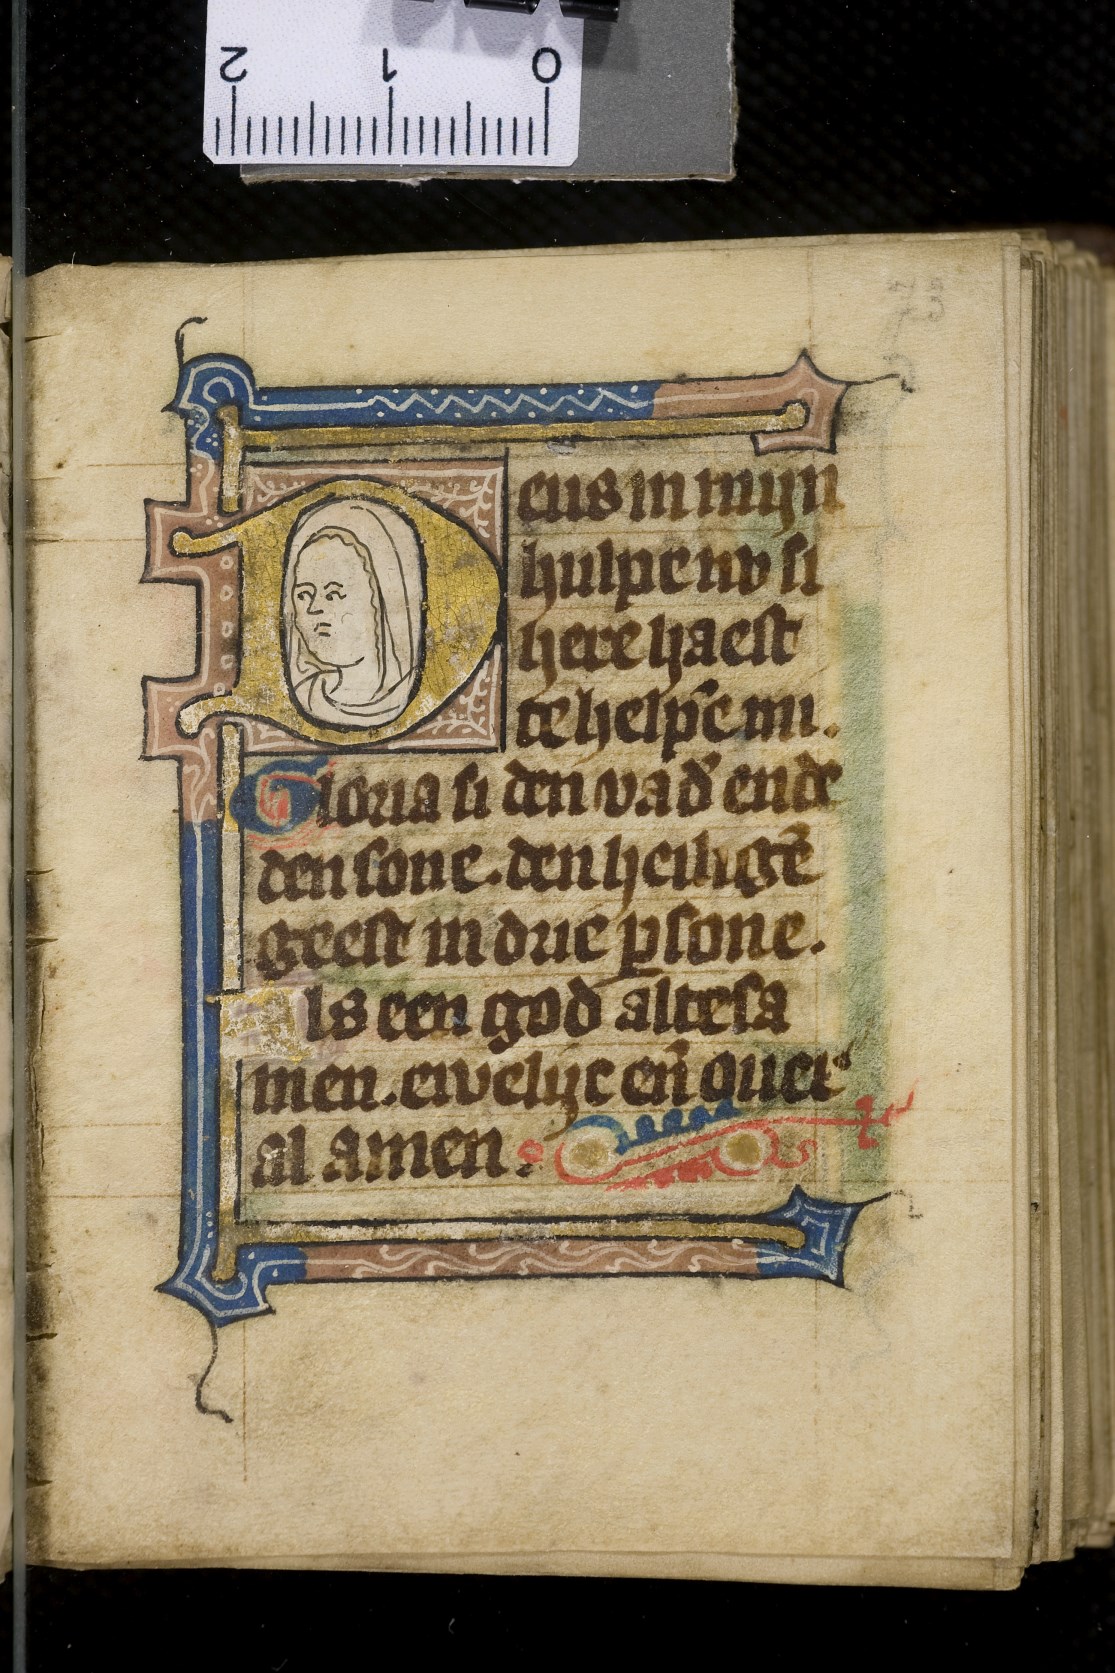 2 1 0
Deus in mijn
hulpe nv si
here haest
te helpē mi.
Gloria si den vad' ende
den sone. den heiligē
geest in drie psone.
Als een god altesa
men. ewelijc eñ ouer
al amen.